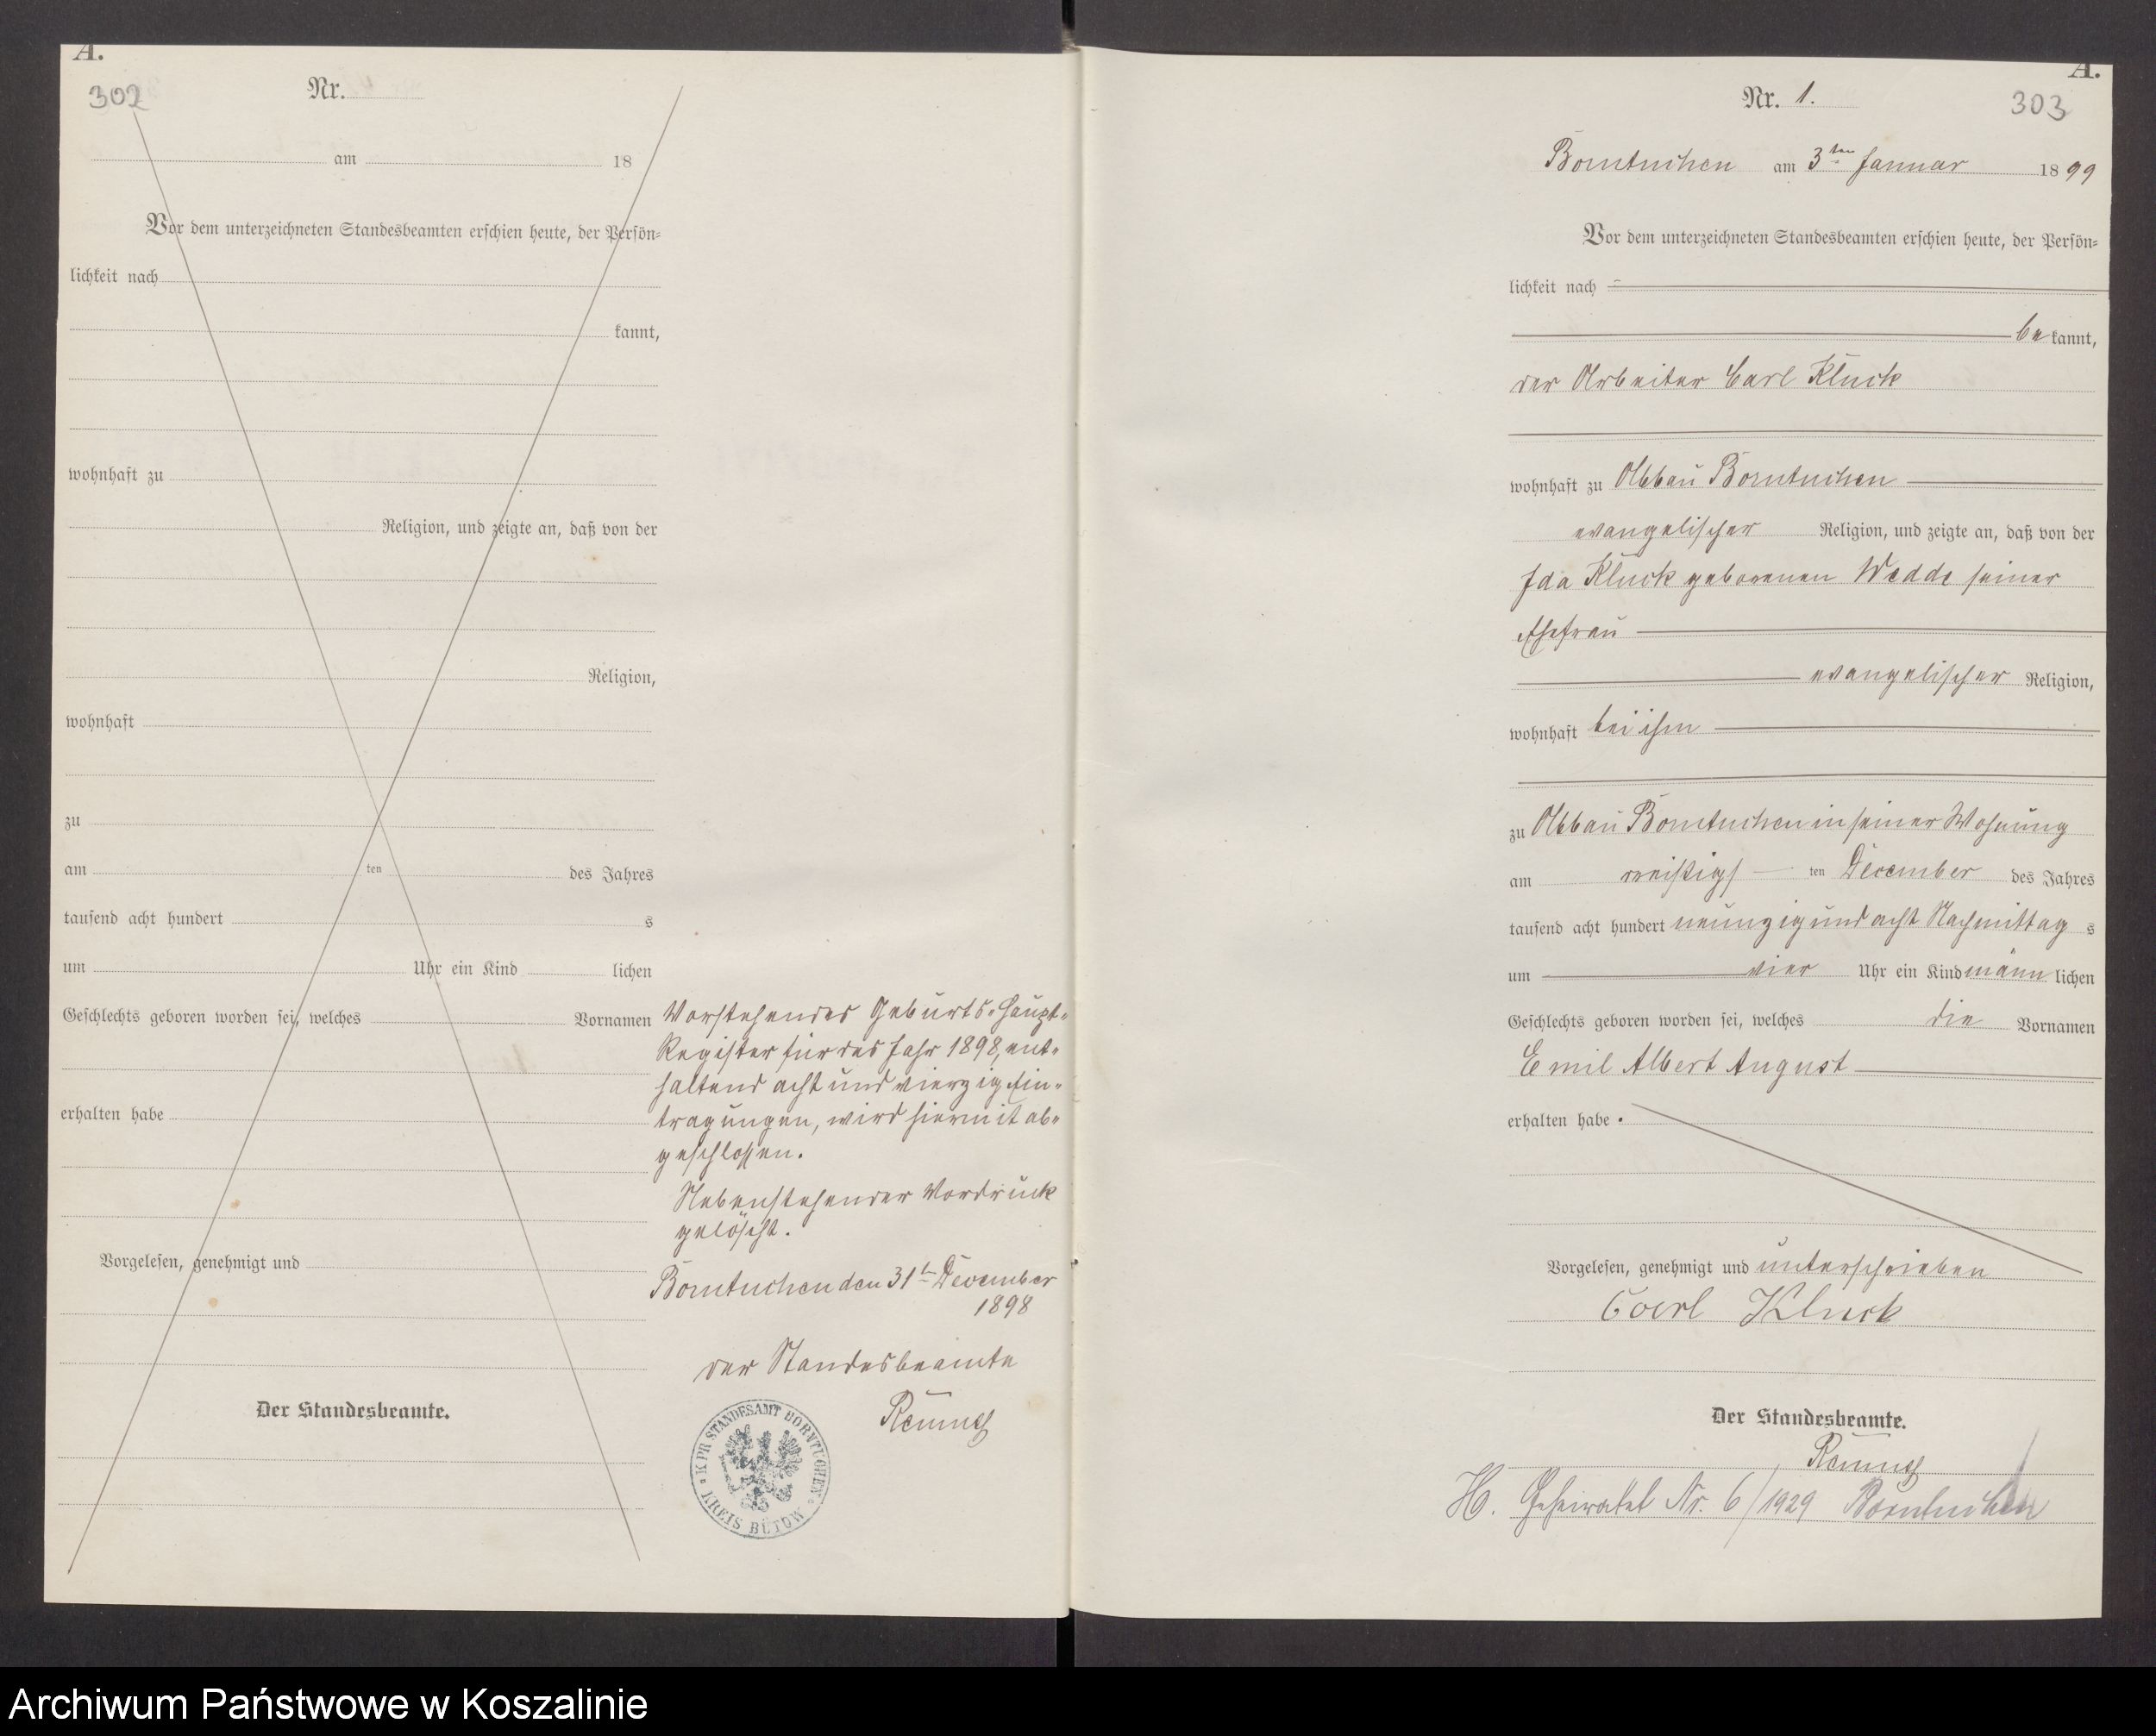 A.
302
Nr.
am 18
Vor dem unterzeichneten Standesbeamten erschien heute, der Persön-
lichkeit nach
kannt,
wohnhaft zu
Religion, und zeigte an, daß von der
Religion,
wohnhaft
zu
am ten des Jahres
tausend acht hundert s
um Uhr ein Kind lichen
Geschlechts geboren worden sei, welches Vornamen
erhalten habe
Vorgelesen, genehmigt und
Der Standesbeamte.
Vorstehendes Geburts-Haupt-
Register für das Jahr 1898, ent-
haltend acht und vierzig Ein-
tragungen, wird hiermit ab-
geschlossen.
Nebenstehender Vordruck
gelöscht.
Borntuchen den 31ten December
1898
der Standesbeamte
KPR STANDESAMT BORNTUCHEN
KREIS BÜTOW
A.
303
Nr. 1.
Borntuchen am 3ten Januar 1899
Vor dem unterzeichneten Standesbeamten erschien heute, der Persön-
lichkeit nach
bekannt,
der Arbeiter Carl Kluck
wohnhaft zu Abbau Borntuchen
evangelischer Religion, und zeigte an, daß von der
Ida Kluck geborenen Wedde seiner
Ehefrau
evangelischer Religion,
wohnhaft bei ihm
zu Abbau Borntuchen in seiner Wohnung
am dreißigs ten December des Jahres
tausend acht hundert neunzig und acht Nachmittags
um vier Uhr ein Kind männlichen
Geschlechts geboren worden sei, welches die Vornamen
Emil Albert August
erhalten habe.
Vorgelesen, genehmigt und unterschrieben
Carl Kluck
Der Standesbeamte.
H. Geheiratet Nr. 6/1929 Borntuchen
Archiwum Państwowe w Koszalinie